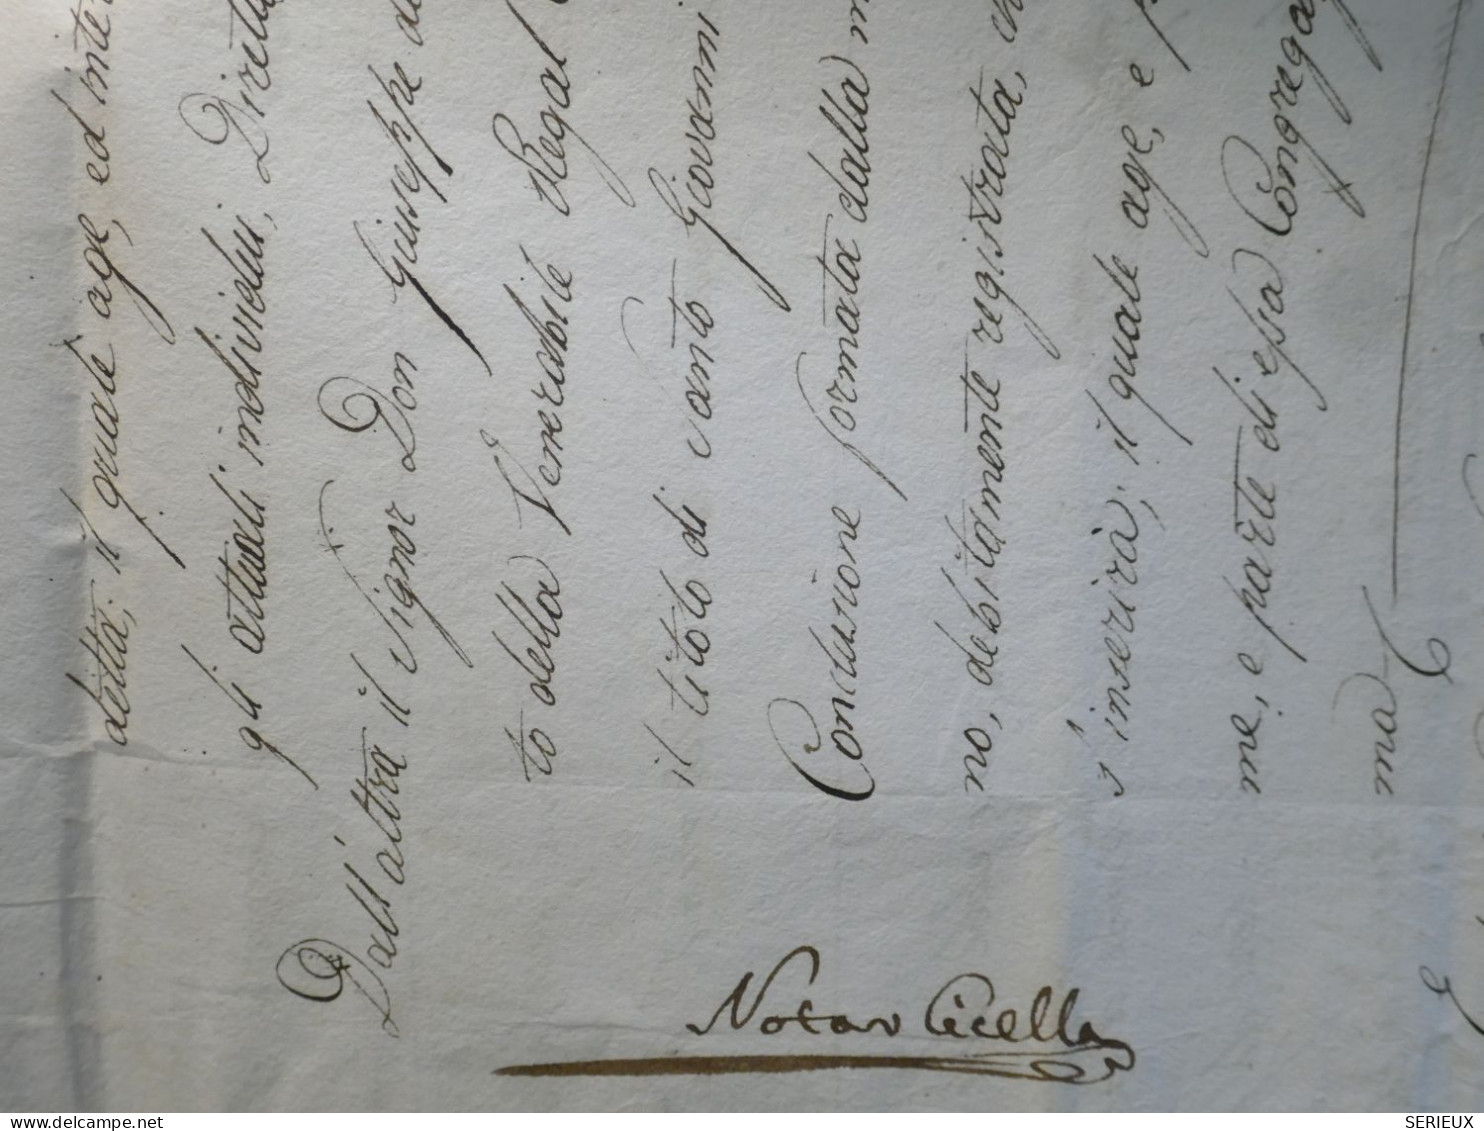 detta; il quale age, ed inte
gli attuali individui, Diretta
Dall'altra il Signor Don Giuseppe de
to della Venerabile Regal
il titolo di Santo Giovanni
Conclusione formata dalla m
no, debitamente registrata, ch
s'inserirà; il quale age, e p
me, e parte di essa Congrega
ma
Notar Cicella
delcampe.net
SERIEUX